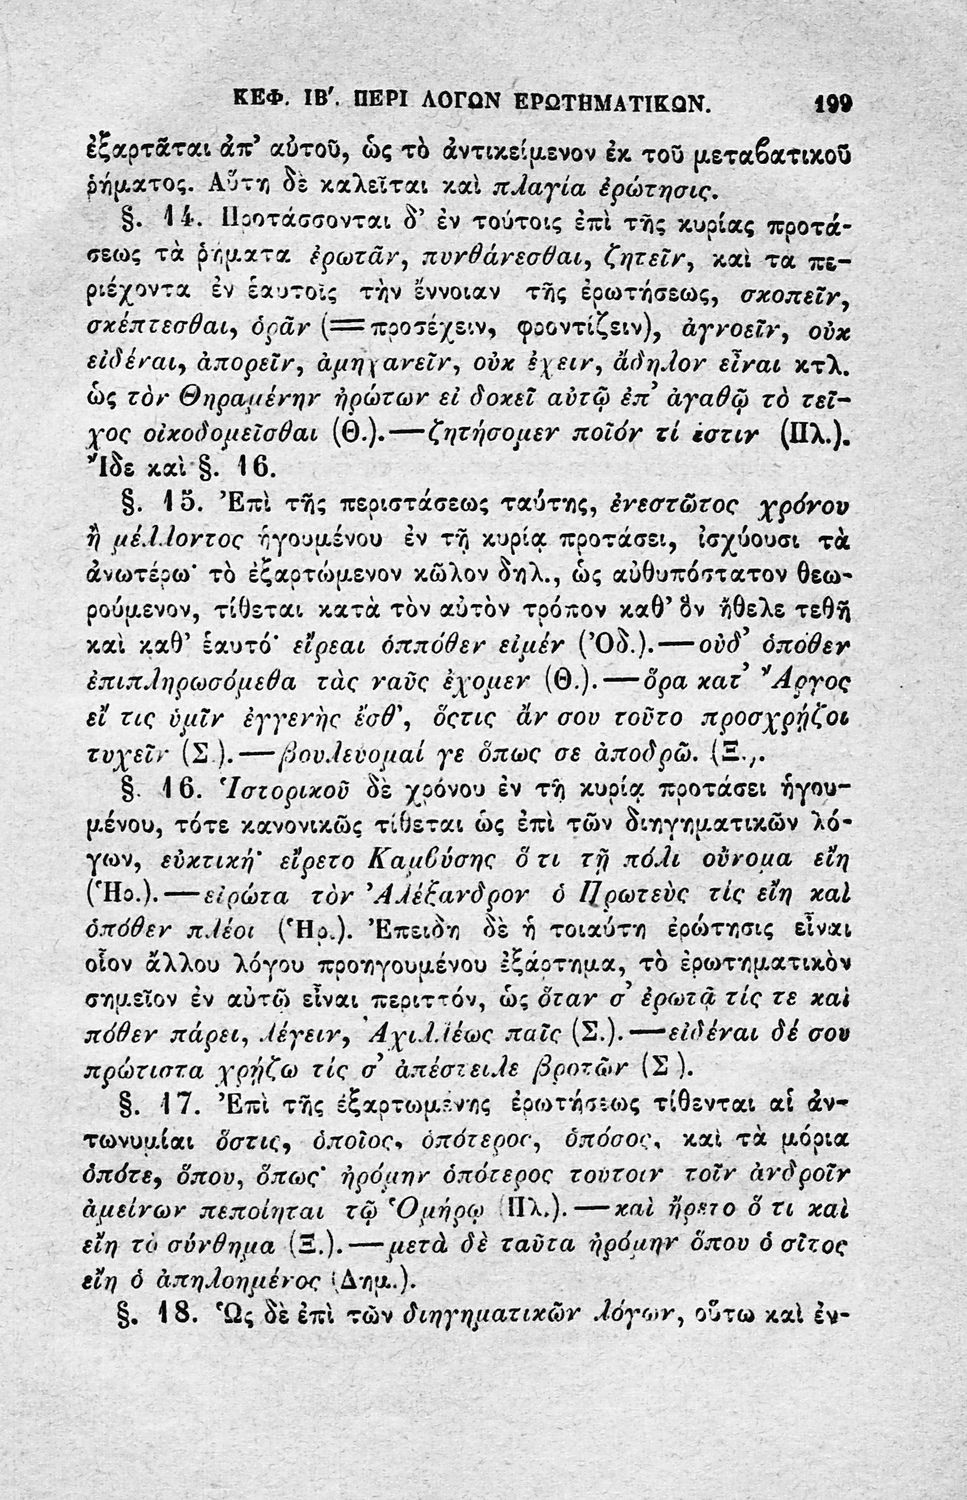 ΚΕΦ. ΙΒ′. ΠΕΡΙ ΛΟΓΩΝ ΕΡΩΤΗΜΑΤΙΚΩΝ. 199
ἐξαρτᾶται ἀπ’ αὐτοῦ, ὡς τὸ ἀντικείμενον ἐκ τοῦ μεταβατικοῦ
ῥήματος. Αὕτη δὲ καλεῖται καὶ πλαγία ἐρώτησις.
§. 14. Προτάσσονται δ’ ἐν τούτοις ἐπὶ τῆς κυρίας προτά-
σεως τὰ ῥήματα ἐρωτᾶν, πυνθάνεσθαι, ζητεῖν, καὶ τα πε-
ριέχοντα ἐν ἑαυτοῖς τὴν ἔννοιαν τῆς ἐρωτήσεως, σκοπεῖν,
σκέπτεσθαι, ὁρᾶν (=προσέχειν, φροντίζειν), ἀγνοεῖν, οὐκ
εἰδέναι, ἀπορεῖν, ἀμηχανεῖν, οὐκ ἔχειν, ἄδηλον εἶναι κτλ.
ὡς τὸν Θηραμένην ἠρώτων εἰ δοκεῖ αὐτῷ ἐπ’ ἀγαθῷ τὸ τεῖ-
χος οἰκοδομεῖσθαι (Θ.).—ζητήσομεν ποῖόν τί ἐστιν (Πλ.).
Ἴδε καὶ §. 16.
§. 15. Ἐπὶ τῆς περιστάσεως ταύτης, ἐνεστῶτος χρόνου
ἢ μέλλοντος ἡγουμένου ἐν τῇ κυρίᾳ προτάσει, ἰσχύουσι τὰ
ἀνωτέρω· τὸ ἐξαρτώμενον κῶλον δηλ., ὡς αὐθυπόστατον θεω-
ρούμενον, τίθεται κατὰ τὸν αὐτὸν τρόπον καθ’ ὃν ἤθελε τεθῆ
καὶ καθ’ ἑαυτό· εἴρεαι ὁππόθεν εἰμέν (Ὀδ.).—οὐδ’ ὁπόθεν
ἐπιπληρωσόμεθα τὰς ναῦς ἔχομεν (Θ.).—ὅρα κατ’ Ἄργος
εἴ τις ὑμῖν ἐγγενὴς ἔσθ’, ὅςτις ἄν σου τοῦτο προσχρῄζοι
τυχεῖν (Σ.).—βουλεύομαί γε ὅπως σε ἀποδρῶ. (Ξ.).
§. 16. Ἱστορικοῦ δὲ χρόνου ἐν τῇ κυρίᾳ προτάσει ἡγου-
μένου, τότε κανονικῶς τίθεται ὡς ἐπὶ τῶν διηγηματικῶν λό-
γων, εὐκτική· εἴρετο Καμβύσης ὅ τι τῇ πόλι οὔνομα εἴη
(Ἡρ.).—εἰρώτα τὸν Ἀλέξανδρον ὁ Πρωτεὺς τίς εἴη καὶ
ὁπόθεν πλέοι (Ἡρ.). Ἐπειδὴ δὲ ἡ τοιαύτη ἐρώτησις εἶναι
οἷον ἄλλου λόγου προηγουμένου ἐξάρτημα, τὸ ἐρωτηματικὸν
σημεῖον ἐν αὐτῷ εἶναι περιττόν, ὡς ὅταν σ’ ἐρωτᾷ τίς τε καὶ
πόθεν πάρει, λέγειν, Ἀχιλλέως παῖς (Σ.).—εἰδέναι δέ σου
πρώτιστα χρῄζω τίς σ’ ἀπέστειλε βροτῶν (Σ).
§. 17. Ἐπὶ τῆς ἐξαρτωμένης ἐρωτήσεως τίθενται αἱ ἀν-
τωνυμίαι ὅστις, ὁποῖος, ὁπότερος, ὁπόσος, καὶ τὰ μόρια
ὁπότε, ὅπου, ὅπως· ἠρόμην ὁπότερος τούτοιν τοῖν ἀνδροῖν
ἀμείνων πεποίηται τῷ Ὁμήρῳ (Πλ.).—καὶ ἤρετο ὅ τι καὶ
εἴη τὸ σύνθημα (Ξ.).—μετὰ δὲ ταῦτα ἠρόμην ὅπου ὁ σῖτος
εἴη ὁ ἀπηλοημένος (Δημ.).
§. 18. Ὡς δὲ ἐπὶ τῶν διηγηματικῶν λόγων, οὕτω καὶ ἐν-